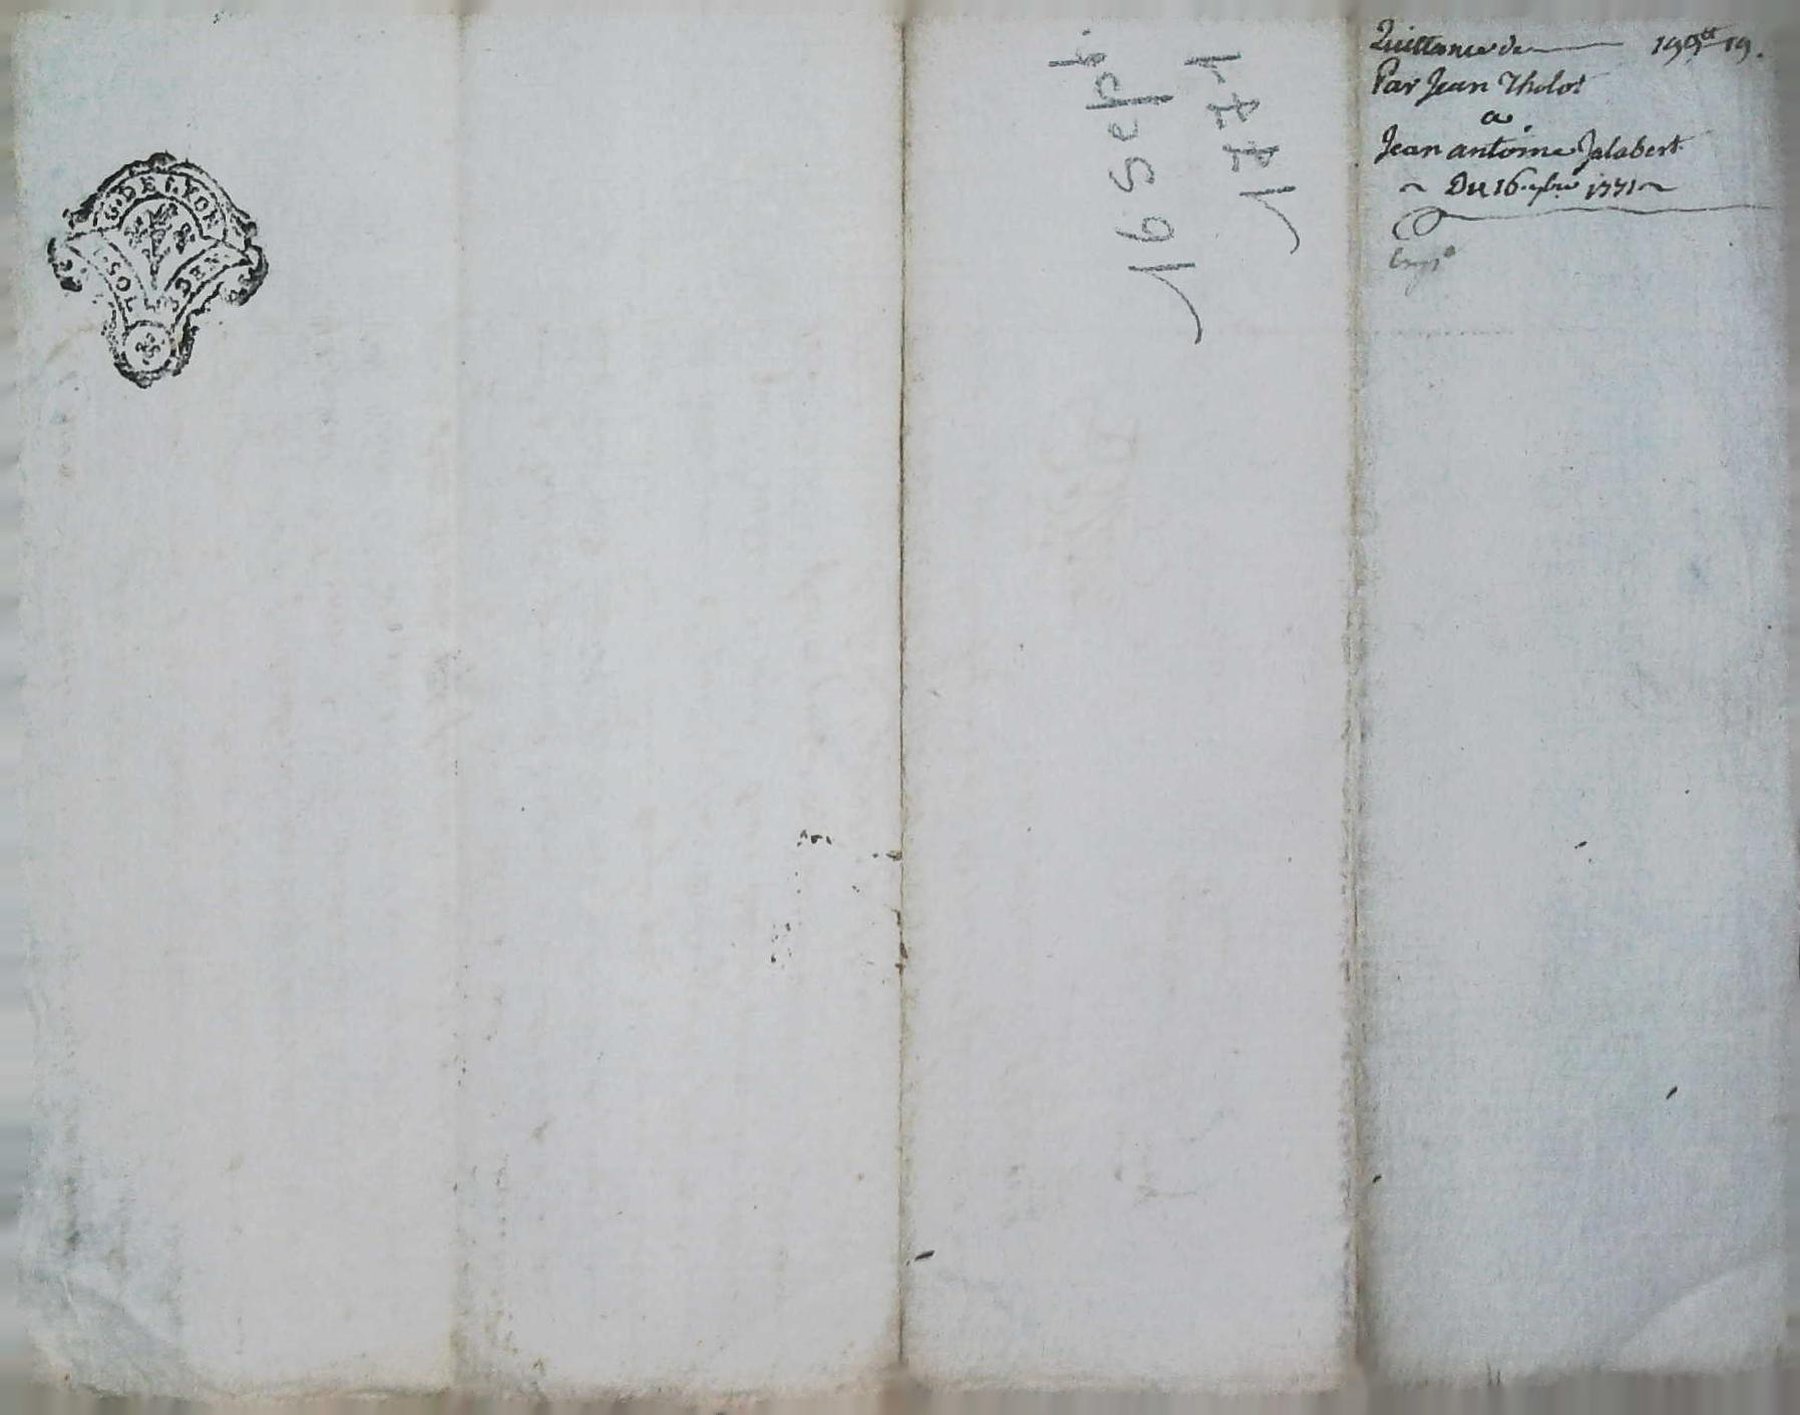 G. DE LYON
SOL
DEX
16 sept.
1771
Quittance de 199tt 19.
Par Jean Tholot
a
Jean antoine Jalabert
Du 16 7bre 1771